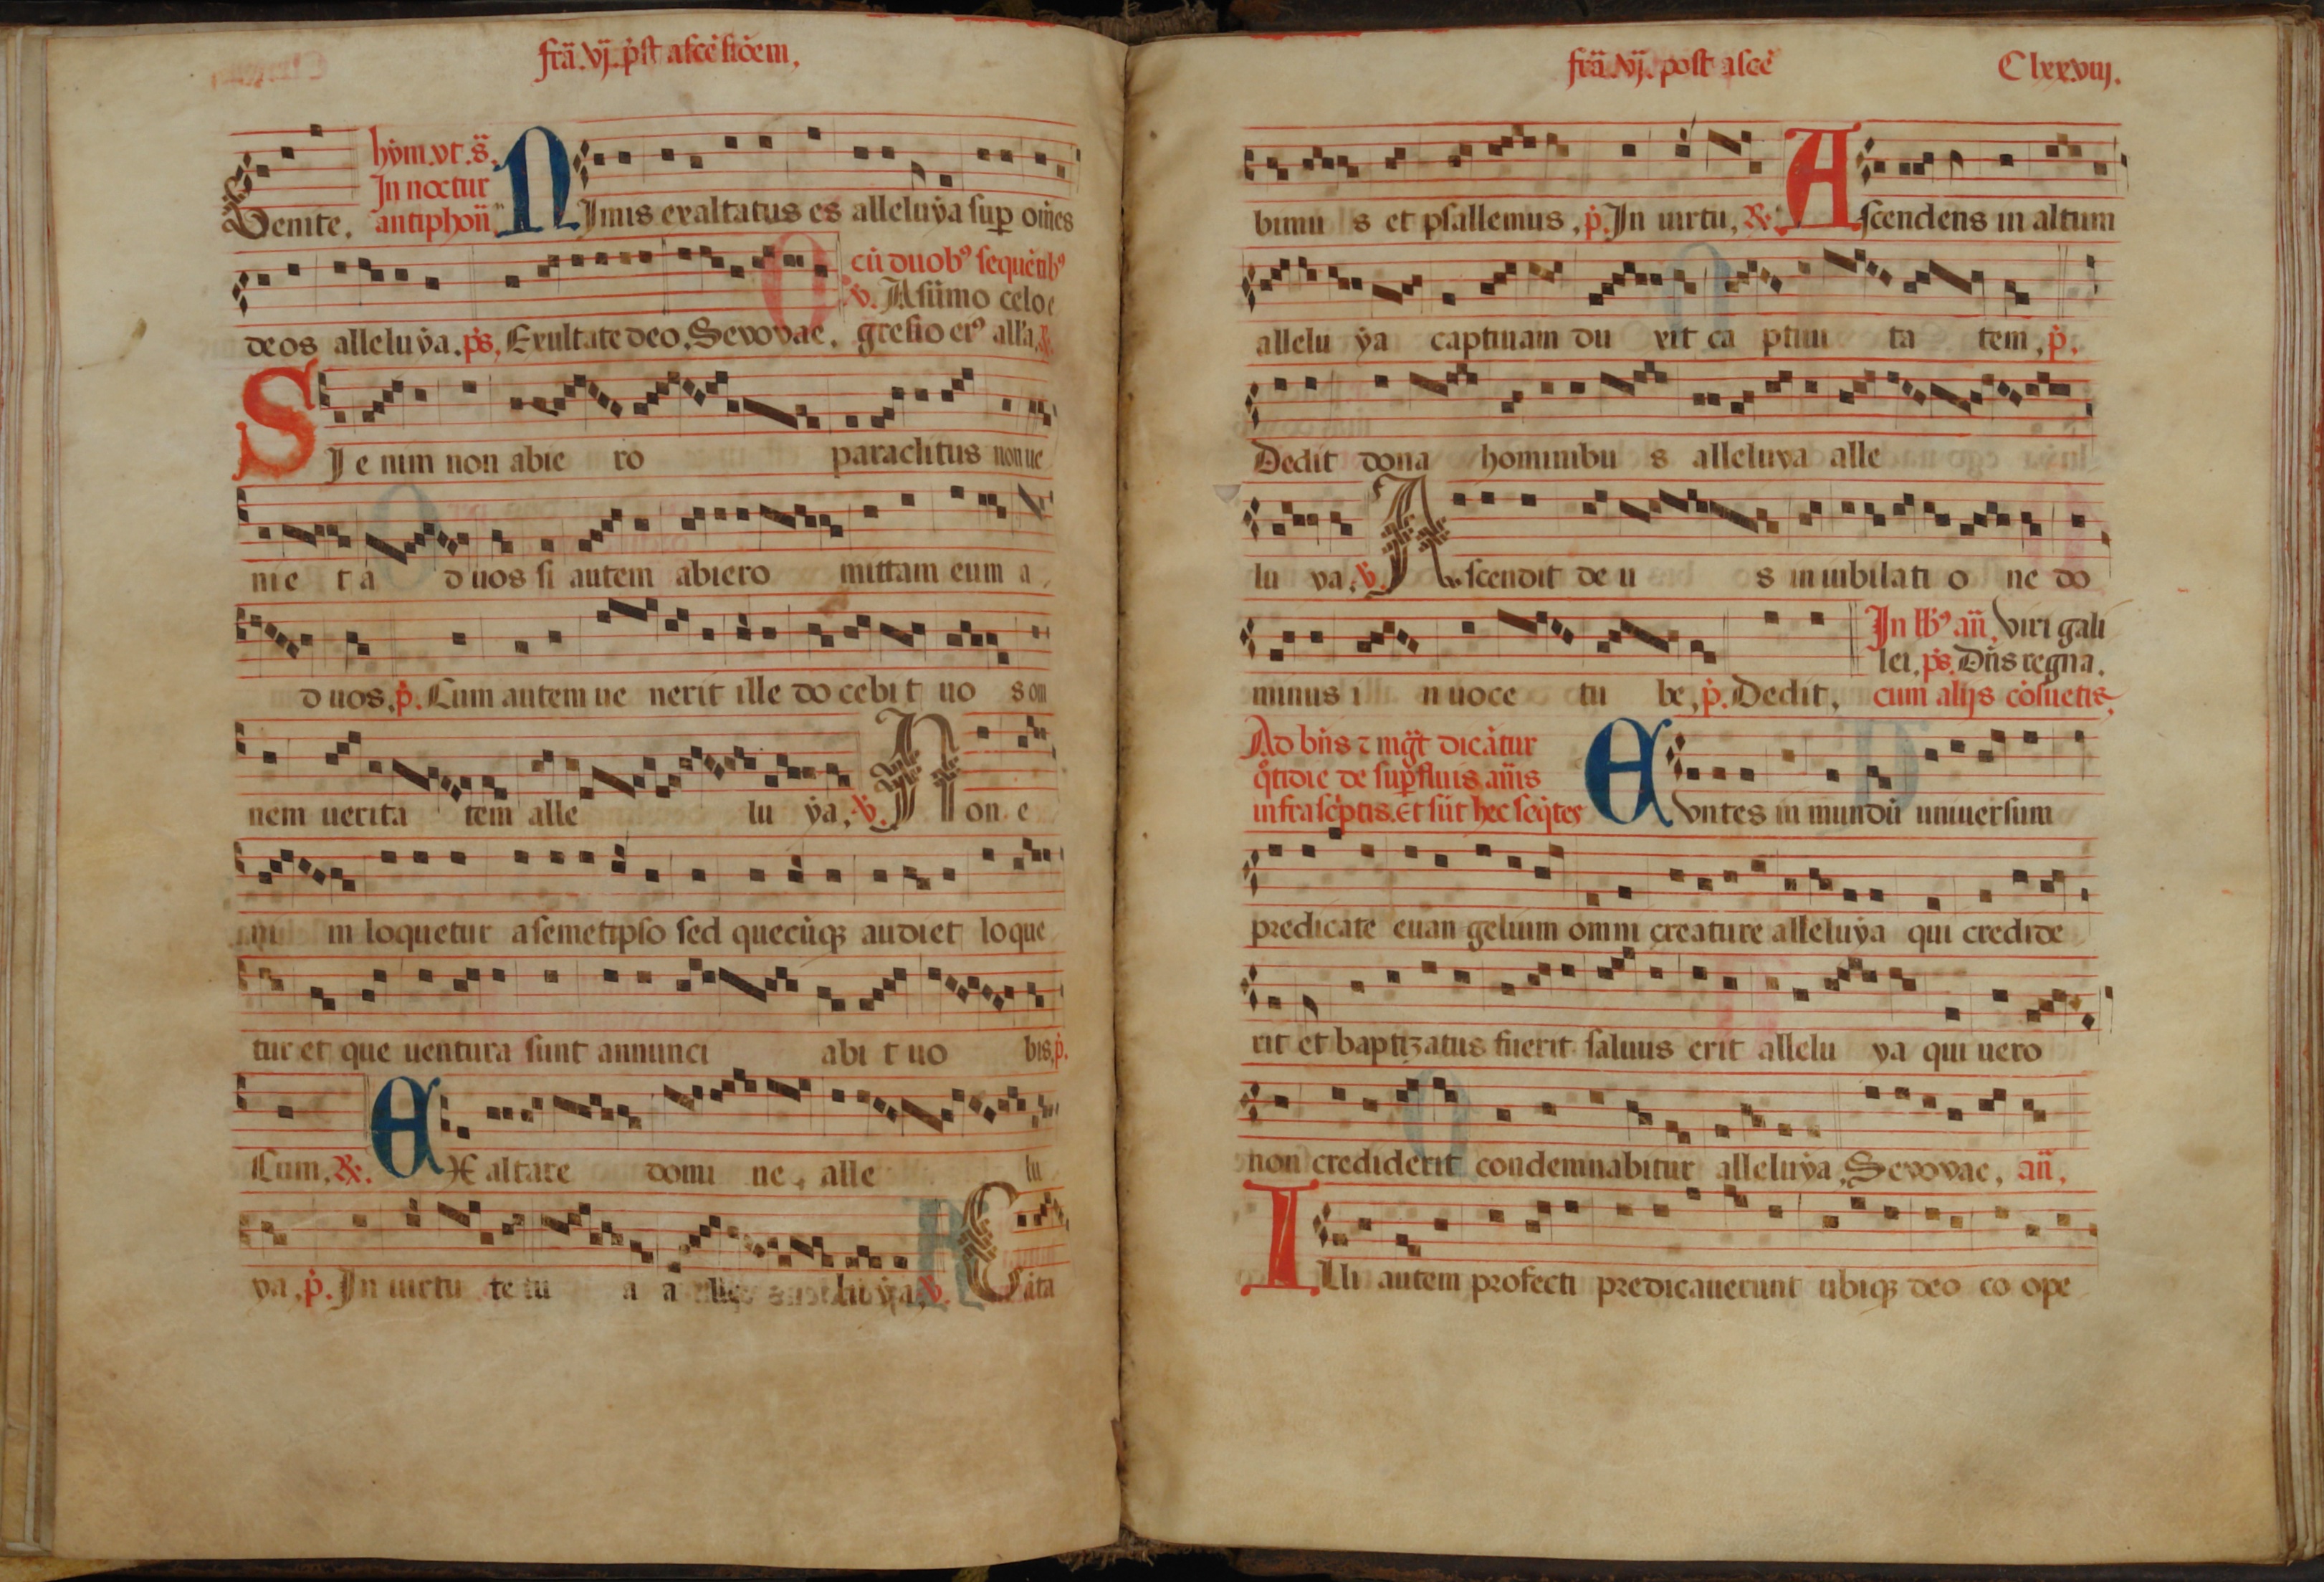 frã.vj.pṡt ascẽsiõem.
hym.vt.s̃.
In noctur
Venite. antiphoñ
NImis exaltatus es alleluya sup om̃es
deos alleluya. ps. Exultate deo. Sevovae.
cũ duob⁹ sequẽtib⁹
v. A sũmo celo e
gressio ei⁹ all'a.
SI e nim non abie ro paraclitus non ue
nie t a d uos si autem abiero mittam eum a
d uos. p. Cum autem ue nerit ille do cebi t uo s om
nem uerita tem alle lu ya. v. N on e
ni m loquetur a semetipso sed quecũq₃ audiet loque
tur et que uentura sunt annunci abi t uo bis. p.
Cum. R. EX altare domi ne alle lu
ya. p. In uirtu te tu a a lle lu ya. v. C ata
frã.vj. post ascẽ
Clxxviij.
bimu s et psallemus. p. In uirtu. R. Ascendens in altum
allelu ya captiuam du xit ca ptiui ta tem. p.
Dedit dona hominibu s alleluya alle
lu ya. v. Ascendit de u s in iubilati o ne do
minus i n uoce tu be. p. Dedit.
In lb⁹ añ. Viri gali
lei. ps. Dñs regna.
cum alijs cõsuetis.
Ad bñs ⁊ mg̃t dicãtur
q̊tidie de supfluis añis
infrascptis. Et sũt hec seq̃tes
EVntes in mundũ uniuersum
predicate euan gelium omni creature alleluya qui credide
rit et baptizatus fuerit saluus erit allelu ya qui uero
non crediderit condemnabitur alleluya. Sevovae. añ.
ILli autem profecti predicauerunt ubiq₃ deo co ope